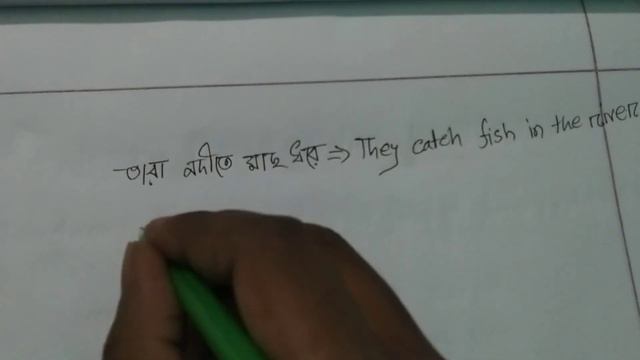 তারা নদীতে মাছ ধরে ⇒ They catch fish in the river